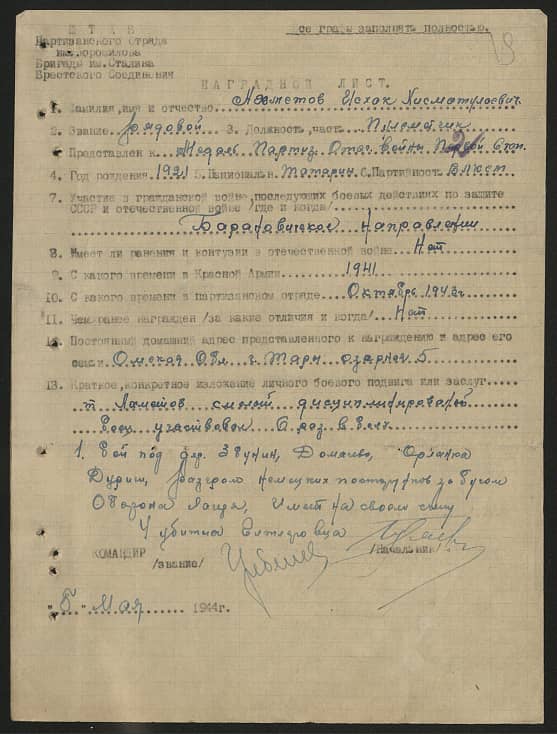 ШТАБ
се графы заполнять полностью.
Партизанского отряда
им. Ворошилова
Бригады им. Сталина
Брестского Соединения
НАГРАДНОЙ ЛИСТ.
1. Фамилия, имя и отчество Ахметов Исхак Хисматулович
2. Звание рядовой 3. Должность, часть Пулеметчик
Представлен к Медаль Партиз. Отеч. Войны
4. Год рождения 1921 5. Национальн. Татарин 6. Партийность ВЛКСМ
7. Участие в гражданской войне, последующих боевых действиях по защите
СССР и отечественной войне /где и когда/
Барановическое Направлении
8. Имеет ли ранения и контузии в отечественной войне Нет
9. С какого времени в Красной Армии 1941
10. С какого времени в партизанском отряде Октябрь 1943г
11. Чем ранее награжден /за какие отличия и когда/ Нет
12. Постоянный домашний адрес представленного к награждению и адрес его
семьи Омская Обл г. Тара 5
13. Краткое, конкретное изложение личного боевого подвига или заслуг
т. Ахметов смелый дисциплинированый
боец участвовал 6 раз в
1. Бой под дер. Збунин, Домачево,
разгром немецких за Бугом
Оборона лагеря, Имеет на своем счету
4 убитых
КОМАНДИР
/звание/
/Начальник/
"5" Мая 1944г.